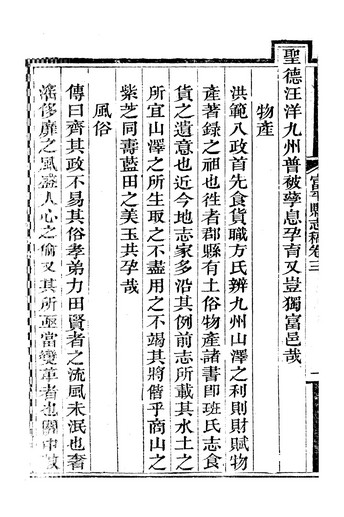 聖德汪洋九州普被孳息孕育又豈獨富邑哉
物產
洪範八政首先食貨職方氏辨九州山澤之利則財賦物
產著錄之祖也徃者郡縣有土俗物產諸書卽班氏志食
貨之遺意也近今地志家多沿其例前志所載其水土之
所宜山澤之所生取之不盡用之不竭其將偕乎商山之
紫芝同壽藍田之美玉共孕哉
風俗
傳曰齊其政不易其俗孝弟力田賢者之流風未泯也奢
侈靡之風蠱人心之偷又其所亟當變革者也關中
富平縣志稿卷三
一